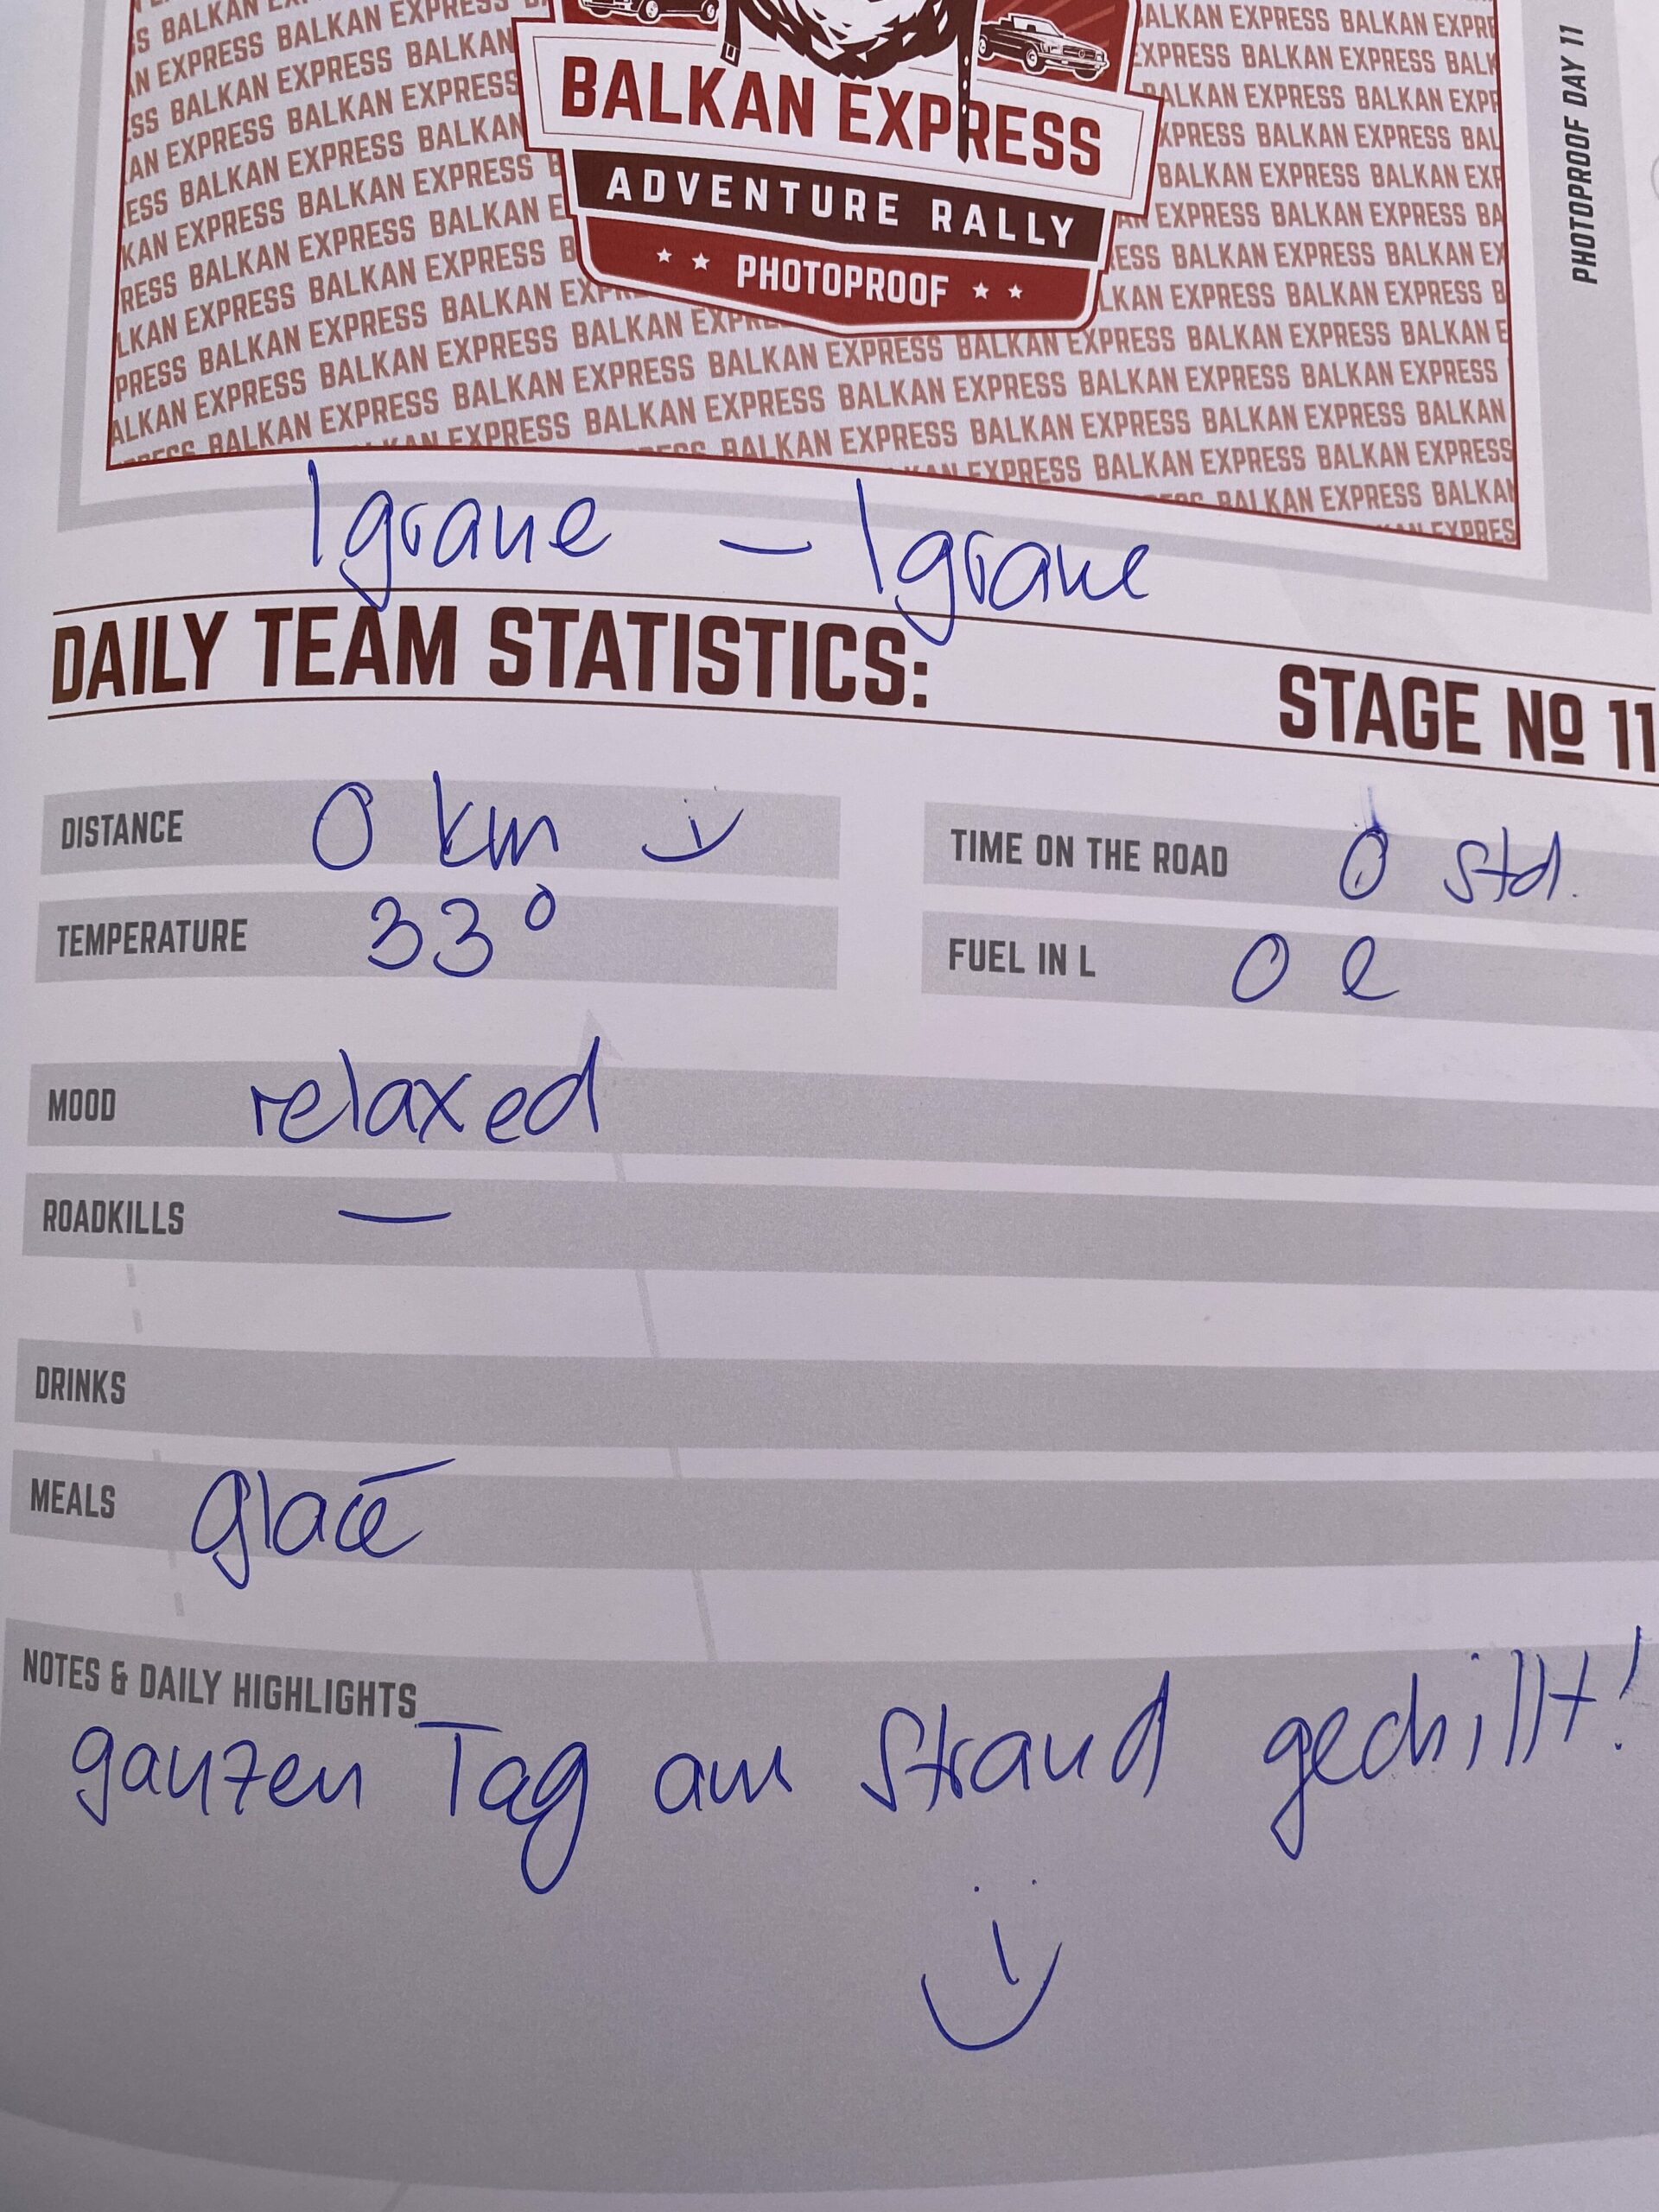 BALKAN EXPRESS
ADVENTURE RALLY
PHOTOPROOF
PHOTOPROOF DAY 11
Igrane – Igrane
DAILY TEAM STATISTICS:
STAGE Nº 11
DISTANCE 0 km
TIME ON THE ROAD 0 Std.
TEMPERATURE 33°
FUEL IN L 0 l
MOOD relaxed
ROADKILLS —
DRINKS
MEALS glacé
NOTES & DAILY HIGHLIGHTS
ganzen Tag am Strand gechillt!